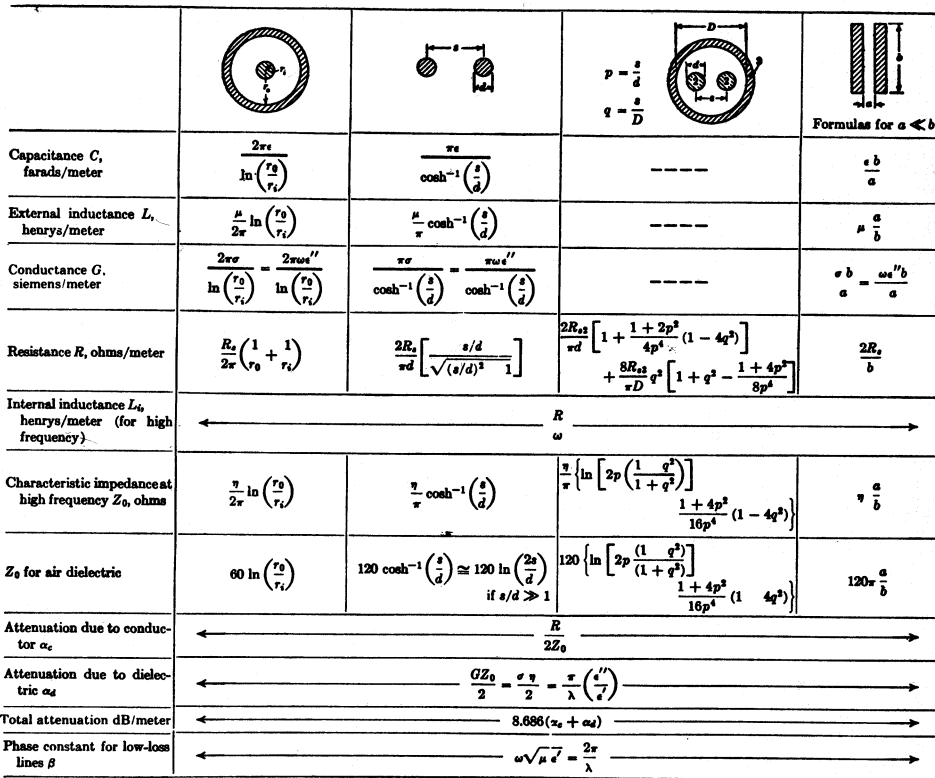 r_i
r_0
s
d
p = s/d
q = s/D
D
d
s
2
b
a
Formulas for a ≪ b
Capacitance C,
farads/meter
2πϵ / ln (r_0/r_i)
πϵ / cosh⁻¹ (s/d)
----
ϵ b / a
External inductance L,
henrys/meter
μ/2π ln (r_0/r_i)
μ/π cosh⁻¹ (s/d)
----
μ a/b
Conductance G.
siemens/meter
2πσ / ln (r_0/r_i) = 2πωϵ″ / ln (r_0/r_i)
πσ / cosh⁻¹ (s/d) = πωϵ″ / cosh⁻¹ (s/d)
----
σ b / a = ωϵ″b / a
Resistance R, ohms/meter
R_s/2π (1/r_0 + 1/r_i)
2R_s/πd [ s/d / √(s/d)² 1 ]
2R_s2/πd [1 + 1 + 2p²/4p⁴ (1 − 4q²)]
+ 8R_s3/πD q² [1 + q² − 1 + 4p²/8p⁴]
2R_s/b
Internal inductance L_i,
henrys/meter (for high
frequency)
R
ω
Characteristic impedance at
high frequency Z_0, ohms
η/2π ln (r_0/r_i)
η/π cosh⁻¹ (s/d)
η/π {ln [2p (1 q²/1 + q²)]
1 + 4p²/16p⁴ (1 − 4q²)}
η a/b
Z_0 for air dielectric
60 ln (r_0/r_i)
120 cosh⁻¹ (s/d) ≅ 120 ln (2s/d)
if s/d ≫ 1
120 {ln [2p (1 q²)/(1 + q²)]
1 + 4p²/16p⁴ (1 4q²)}
120π a/b
Attenuation due to conduc-
tor α_c
R/2Z_0
Attenuation due to dielec-
tric α_d
GZ_0/2 = σ η/2 = π/λ (ϵ″/ϵ′)
Total attenuation dB/meter
8.686(α_c + α_d)
Phase constant for low-loss
lines β
ω√μ ϵ′ = 2π/λ